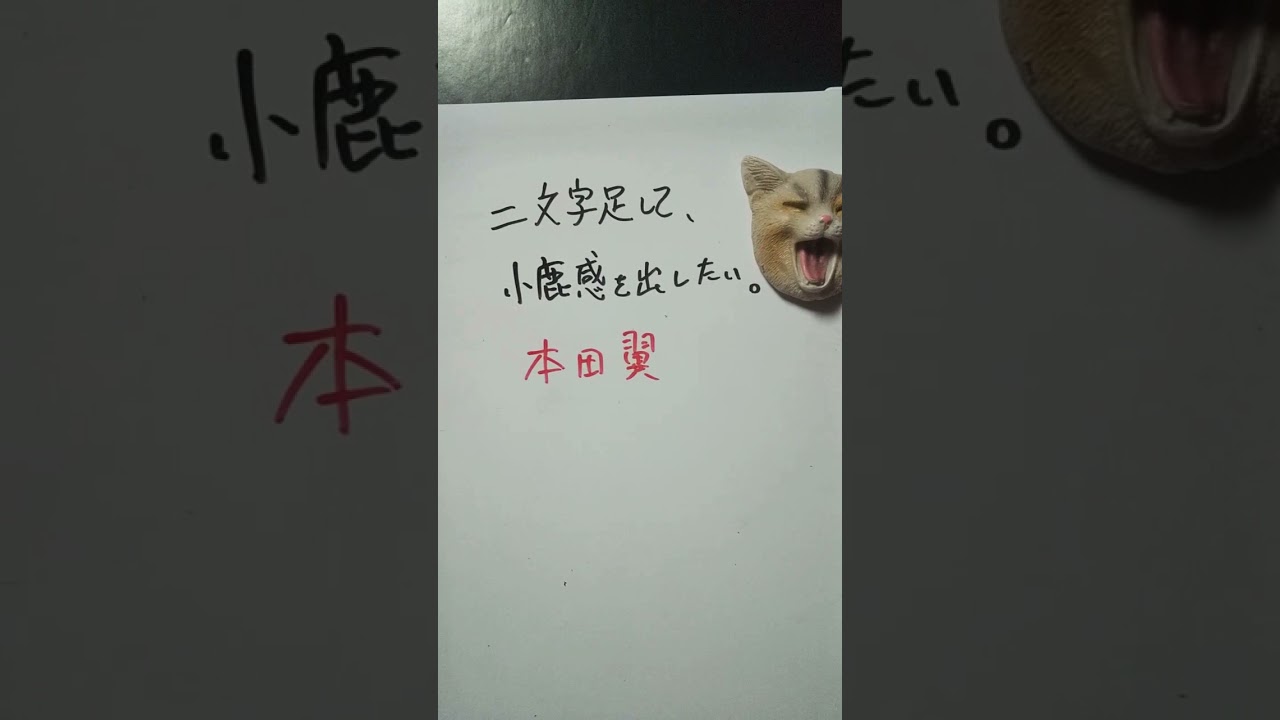 二文字足して、
小鹿感を出したい。
本田翼